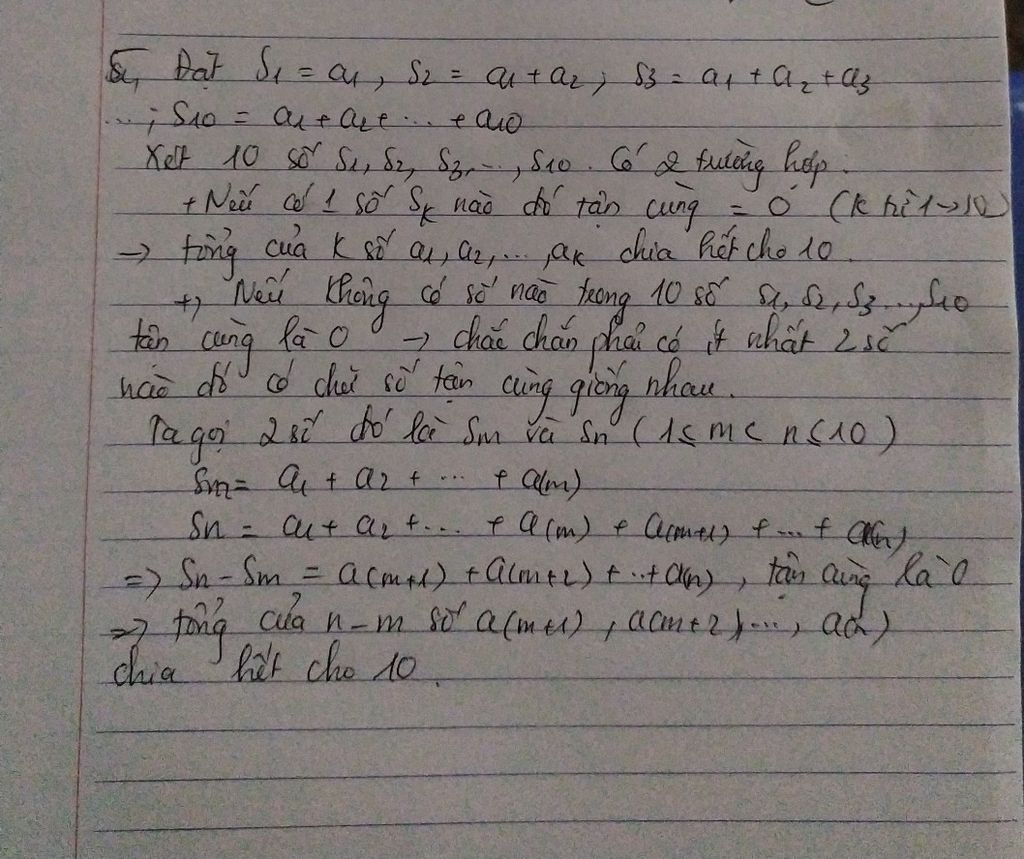 5, Đặt S1 = a1, S2 = a1 + a2; S3 = a1 + a2 + a3
...; S10 = a1 + a2 + ... + a10
Xét 10 số S1, S2, S3, ..., S10. Có 2 trường hợp:
+ Nếu có 1 số Sk nào đó tận cùng = 0 (k từ 1→10)
→ tổng của k số a1, a2, ..., ak chia hết cho 10.
+, Nếu không có số nào trong 10 số S1, S2, S3 ..., S10
tận cùng là 0 → chắc chắn phải có ít nhất 2 số
nào đó có chữ số tận cùng giống nhau.
Ta gọi 2 số đó là Sm và Sn (1≤ m < n ≤ 10)
Sm = a1 + a2 + ... + a(m)
Sn = a1 + a2 + ... + a(m) + a(m+1) + ... + a(n)
=> Sn - Sm = a(m+1) + a(m+2) + ... + a(n), tận cùng là 0
=> tổng của n - m số a(m+1), a(m+2), ..., a(n)
chia hết cho 10.